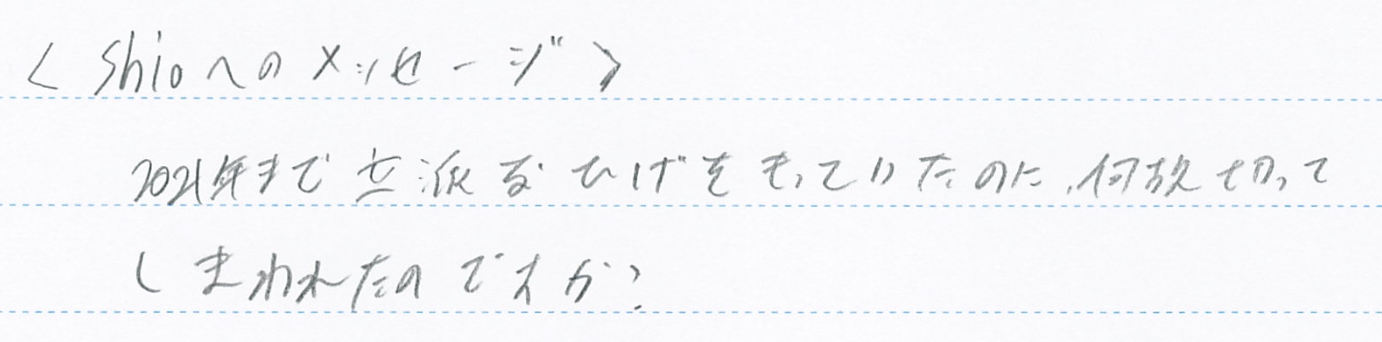 <Shioへのメッセージ>
2021年まで立派なひげをもっていたのに、何故切って
しまわれたのですか?